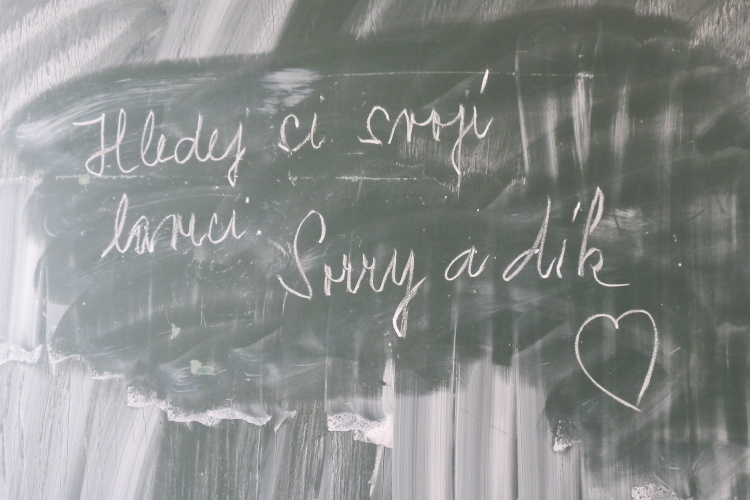 Hledej si svojí
lavici.
Sorry a dík